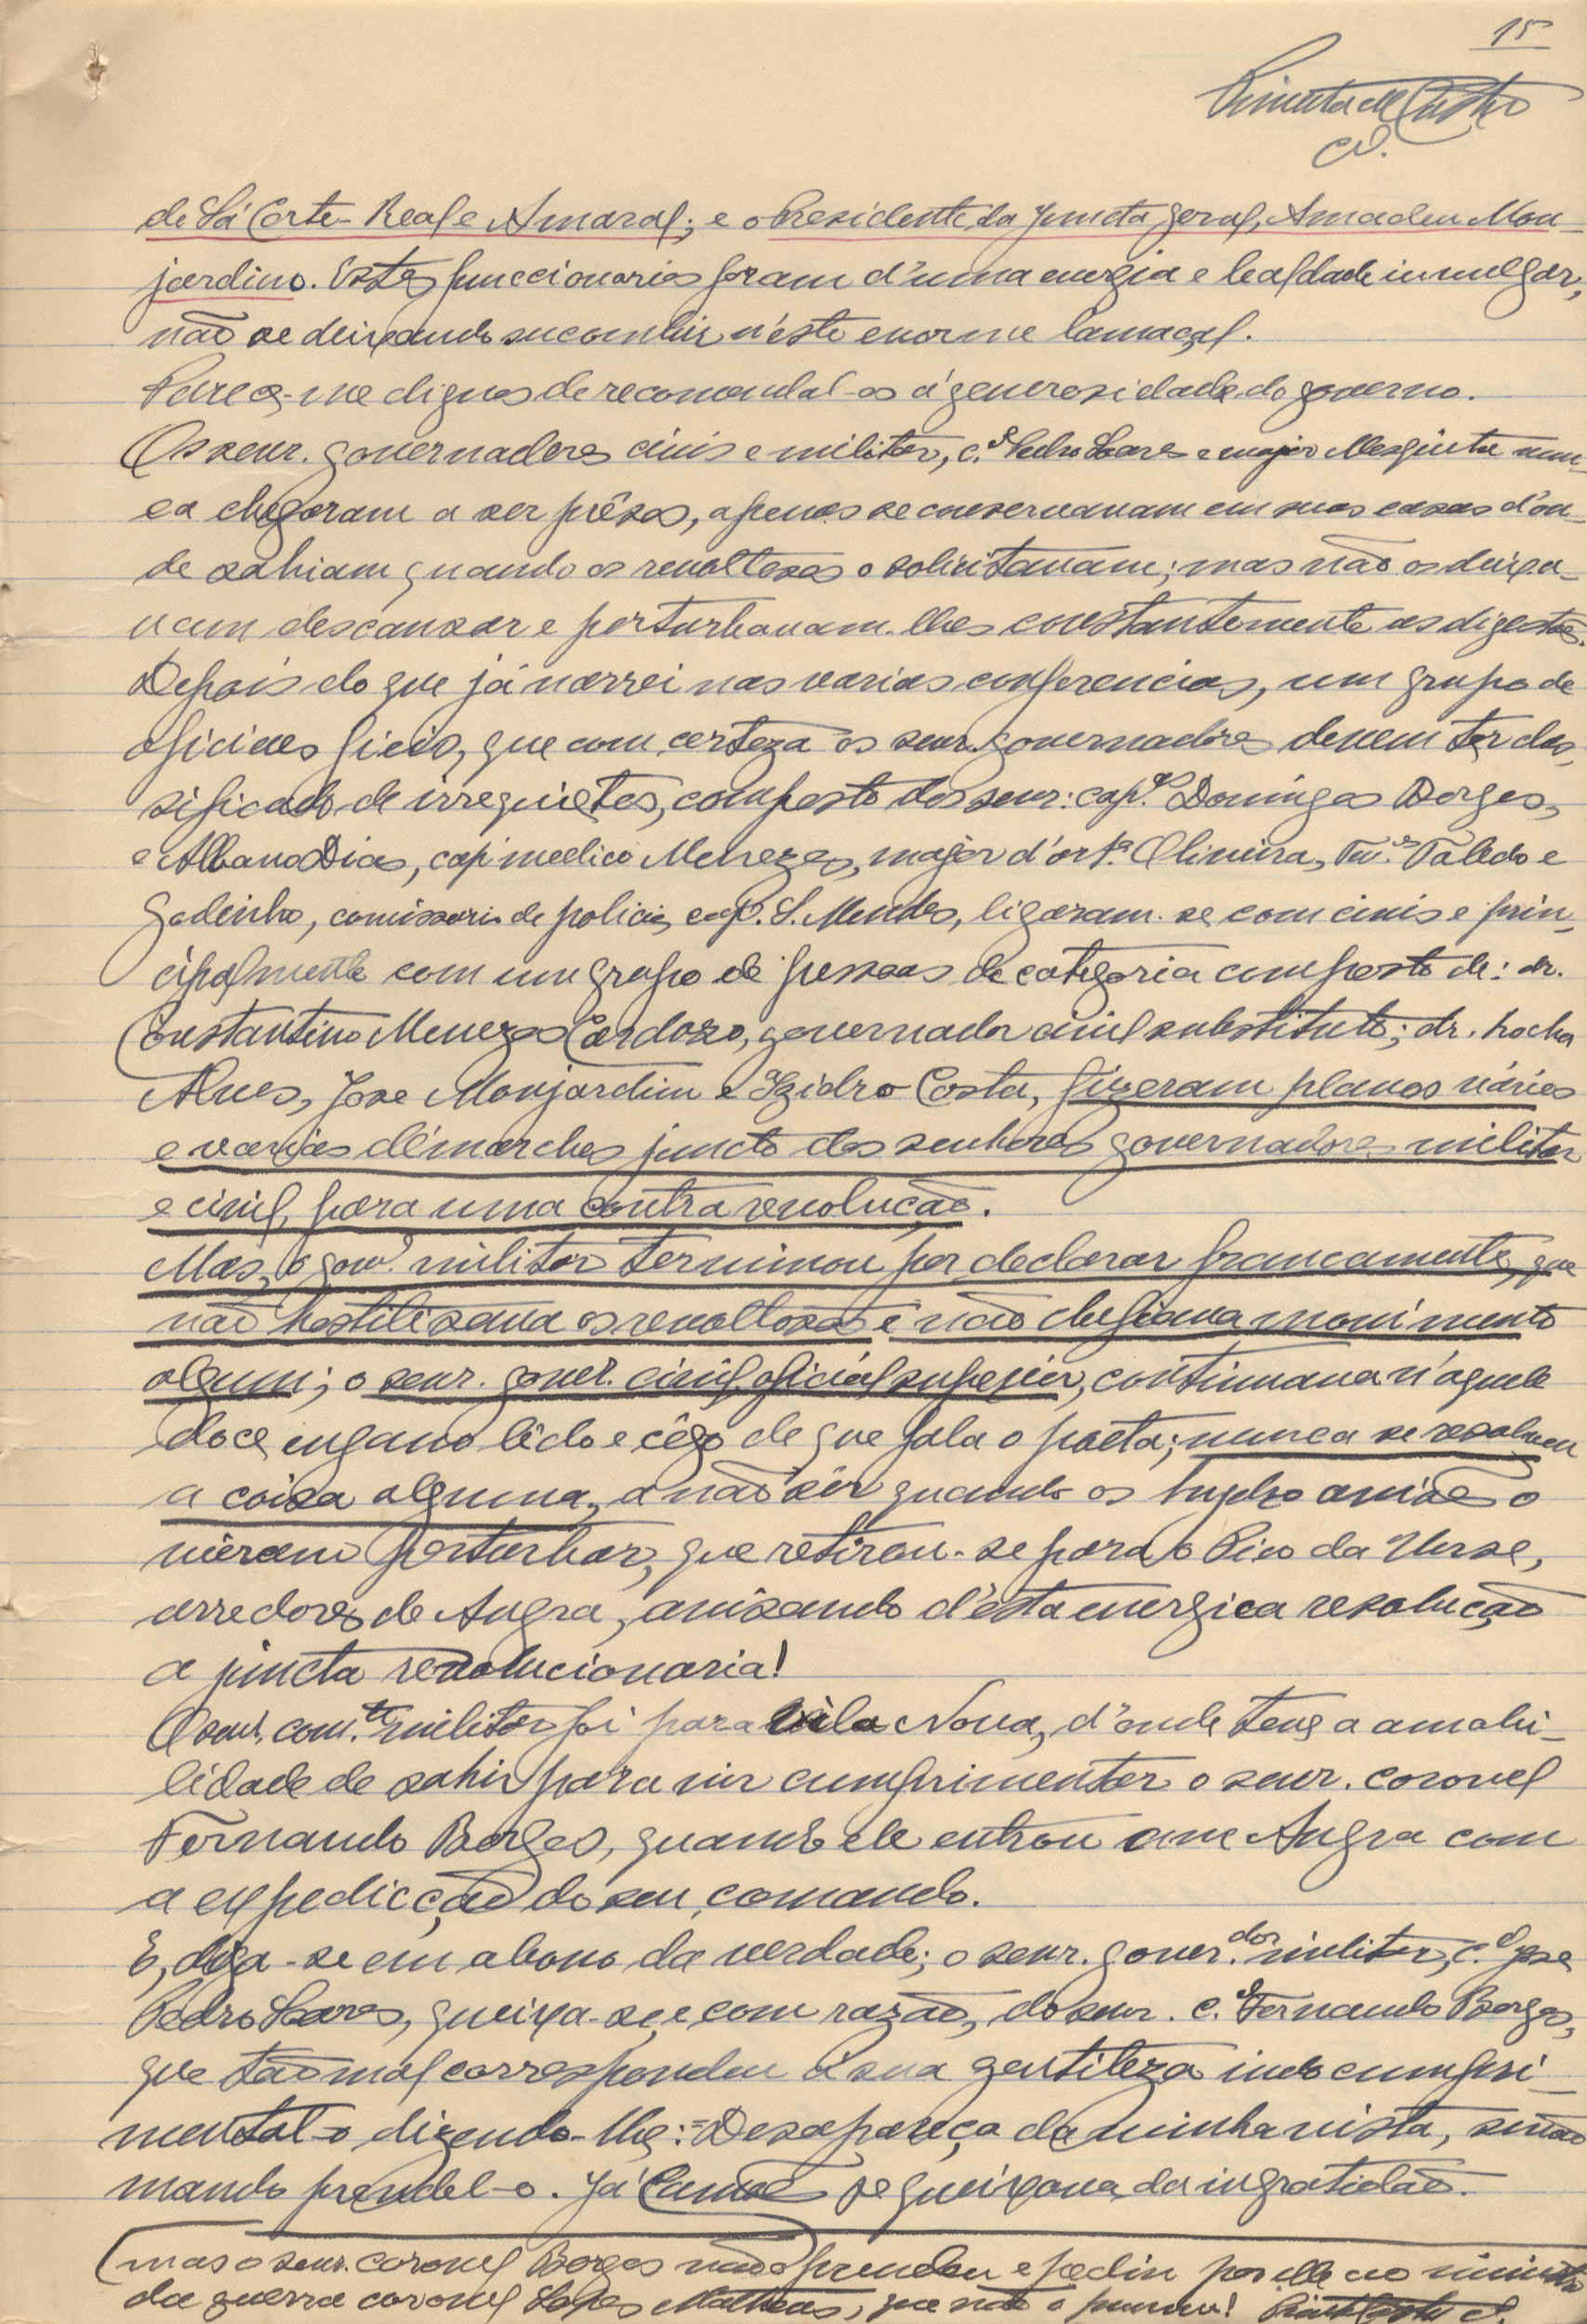 15
Pimenta de Castro
de Sá Corte-Real e Amaral; e o Presidente da Juncta Geral, Amadeu Mon-
jardino. Estes funccionarios foram d'uma energia e lealdade invulgar,
não se deixando sucumbir n'este enorme lamaçal.
Parece-me dignos de recomendal-os á generosidade do governo.
Os senr. governadores civis e militar, c.el Pedro Soares e major Mesquita nun-
ca chegaram a ser prêsos, apenas se conservavam em suas casas d'on-
de sahiam quando os revoltosos o solicitavam; mas não os deixa-
vam descansar e perturbavam-lhes constantemente as digestões.
Depois do que já narrei nas varias conferencias, um grupo de
oficiaes fieis, que com certeza os senr. governadores devem ter clas-
sificado de irrequietos, composto dos senr: cap.es Domingos Borges,
e Albano Dias, cap. medico Menezes, major d'art.ª Oliveira, Ten.es Toledo e
Godinho, comissario de policia, cap. S. Mendes, ligaram-se com civis e prin-
cipalmente com um grupo de pessoas de categoria composto de: dr.
Constantino Menezes Cardoso, governador civil substituto; dr. Rocha
Alves, Jose Monjardim e Izidro Costa, fizeram planos vários
e varias démarches juncto dos senhores governadores militar
e civil, para uma contra revolução.
Mas, o gov.or militar terminou por declarar francamente, que
não hostilisava os revoltosos e não chefiava movimento
algum; o senr. gover. civil, oficial superior, continuava n'aquele
doce engano lêdo e cêgo de que fala o poeta; nunca se resolveu
a coisa alguma, a não sêr quando os hydro aviões o
vieram perturbar, que retirou-se para o Pico da Urse,
arredores de Angra, avisando d'esta energica resolução
a juncta revolucionaria!
O senr. com.te militar foi para Vila Nova, d'onde teve a amabi-
lidade de sahir para vir cumprimentar o senr. coronel
Fernando Borges, quando ele entrou em Angra com
a expedicção do seu comando.
E, diga-se em abono da verdade; o senr. gover.dor militar, c.el Jose
Pedro Soares, queixa-se, e com razão, do senr. c.el Fernando Borges,
que tão mal correspondeu á sua gentileza indo cumpri-
mental-o dizendo-lhe: =Desapareça da minha vista, senão
mando prendel-o. Já Camões se queixava da ingratidão.
mas o senr. coronel Borges não o prendeu e pediu por elle ao ministro
da guerra coronel Lopes Matheus, que não o punisse!